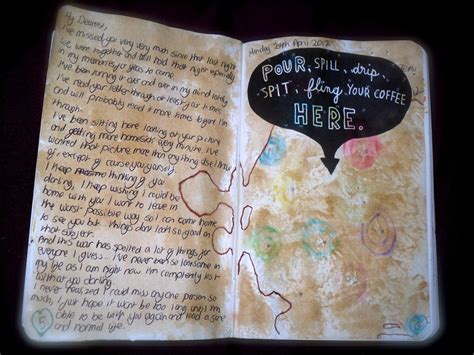 My Dearest,
I've missed you very very much since that last night
we were together and will hold that night especially
in my memories for years to come.
I've been turning it over and over in my mind lately
I've read your letter through at least four times
and will probably read it more times before I'm
through.
I've been sitting here looking at your picture
and getting more homesick every minute. I've
wanted that picture more than anything else I know
of, except of course you yourself.
I keep thinking of you
darling, I keep wishing I could be
home with you. I want to leave in
the worst possible way so I can come home
to see you but things don't look so good on
that subject.
And this war has spoiled a lot of things for
everyone I guess... I've never been so lonesome in
my life as I am right now. I'm completely lost
without you darling.
I never realized I could miss any one person so
much, I just hope it won't be too long until I'm
able to be with you again and lead a sane
and normal life.
5
April 2012
POUR, SPILL, drip,
SPIT, fling YOUR COFFEE
HERE.